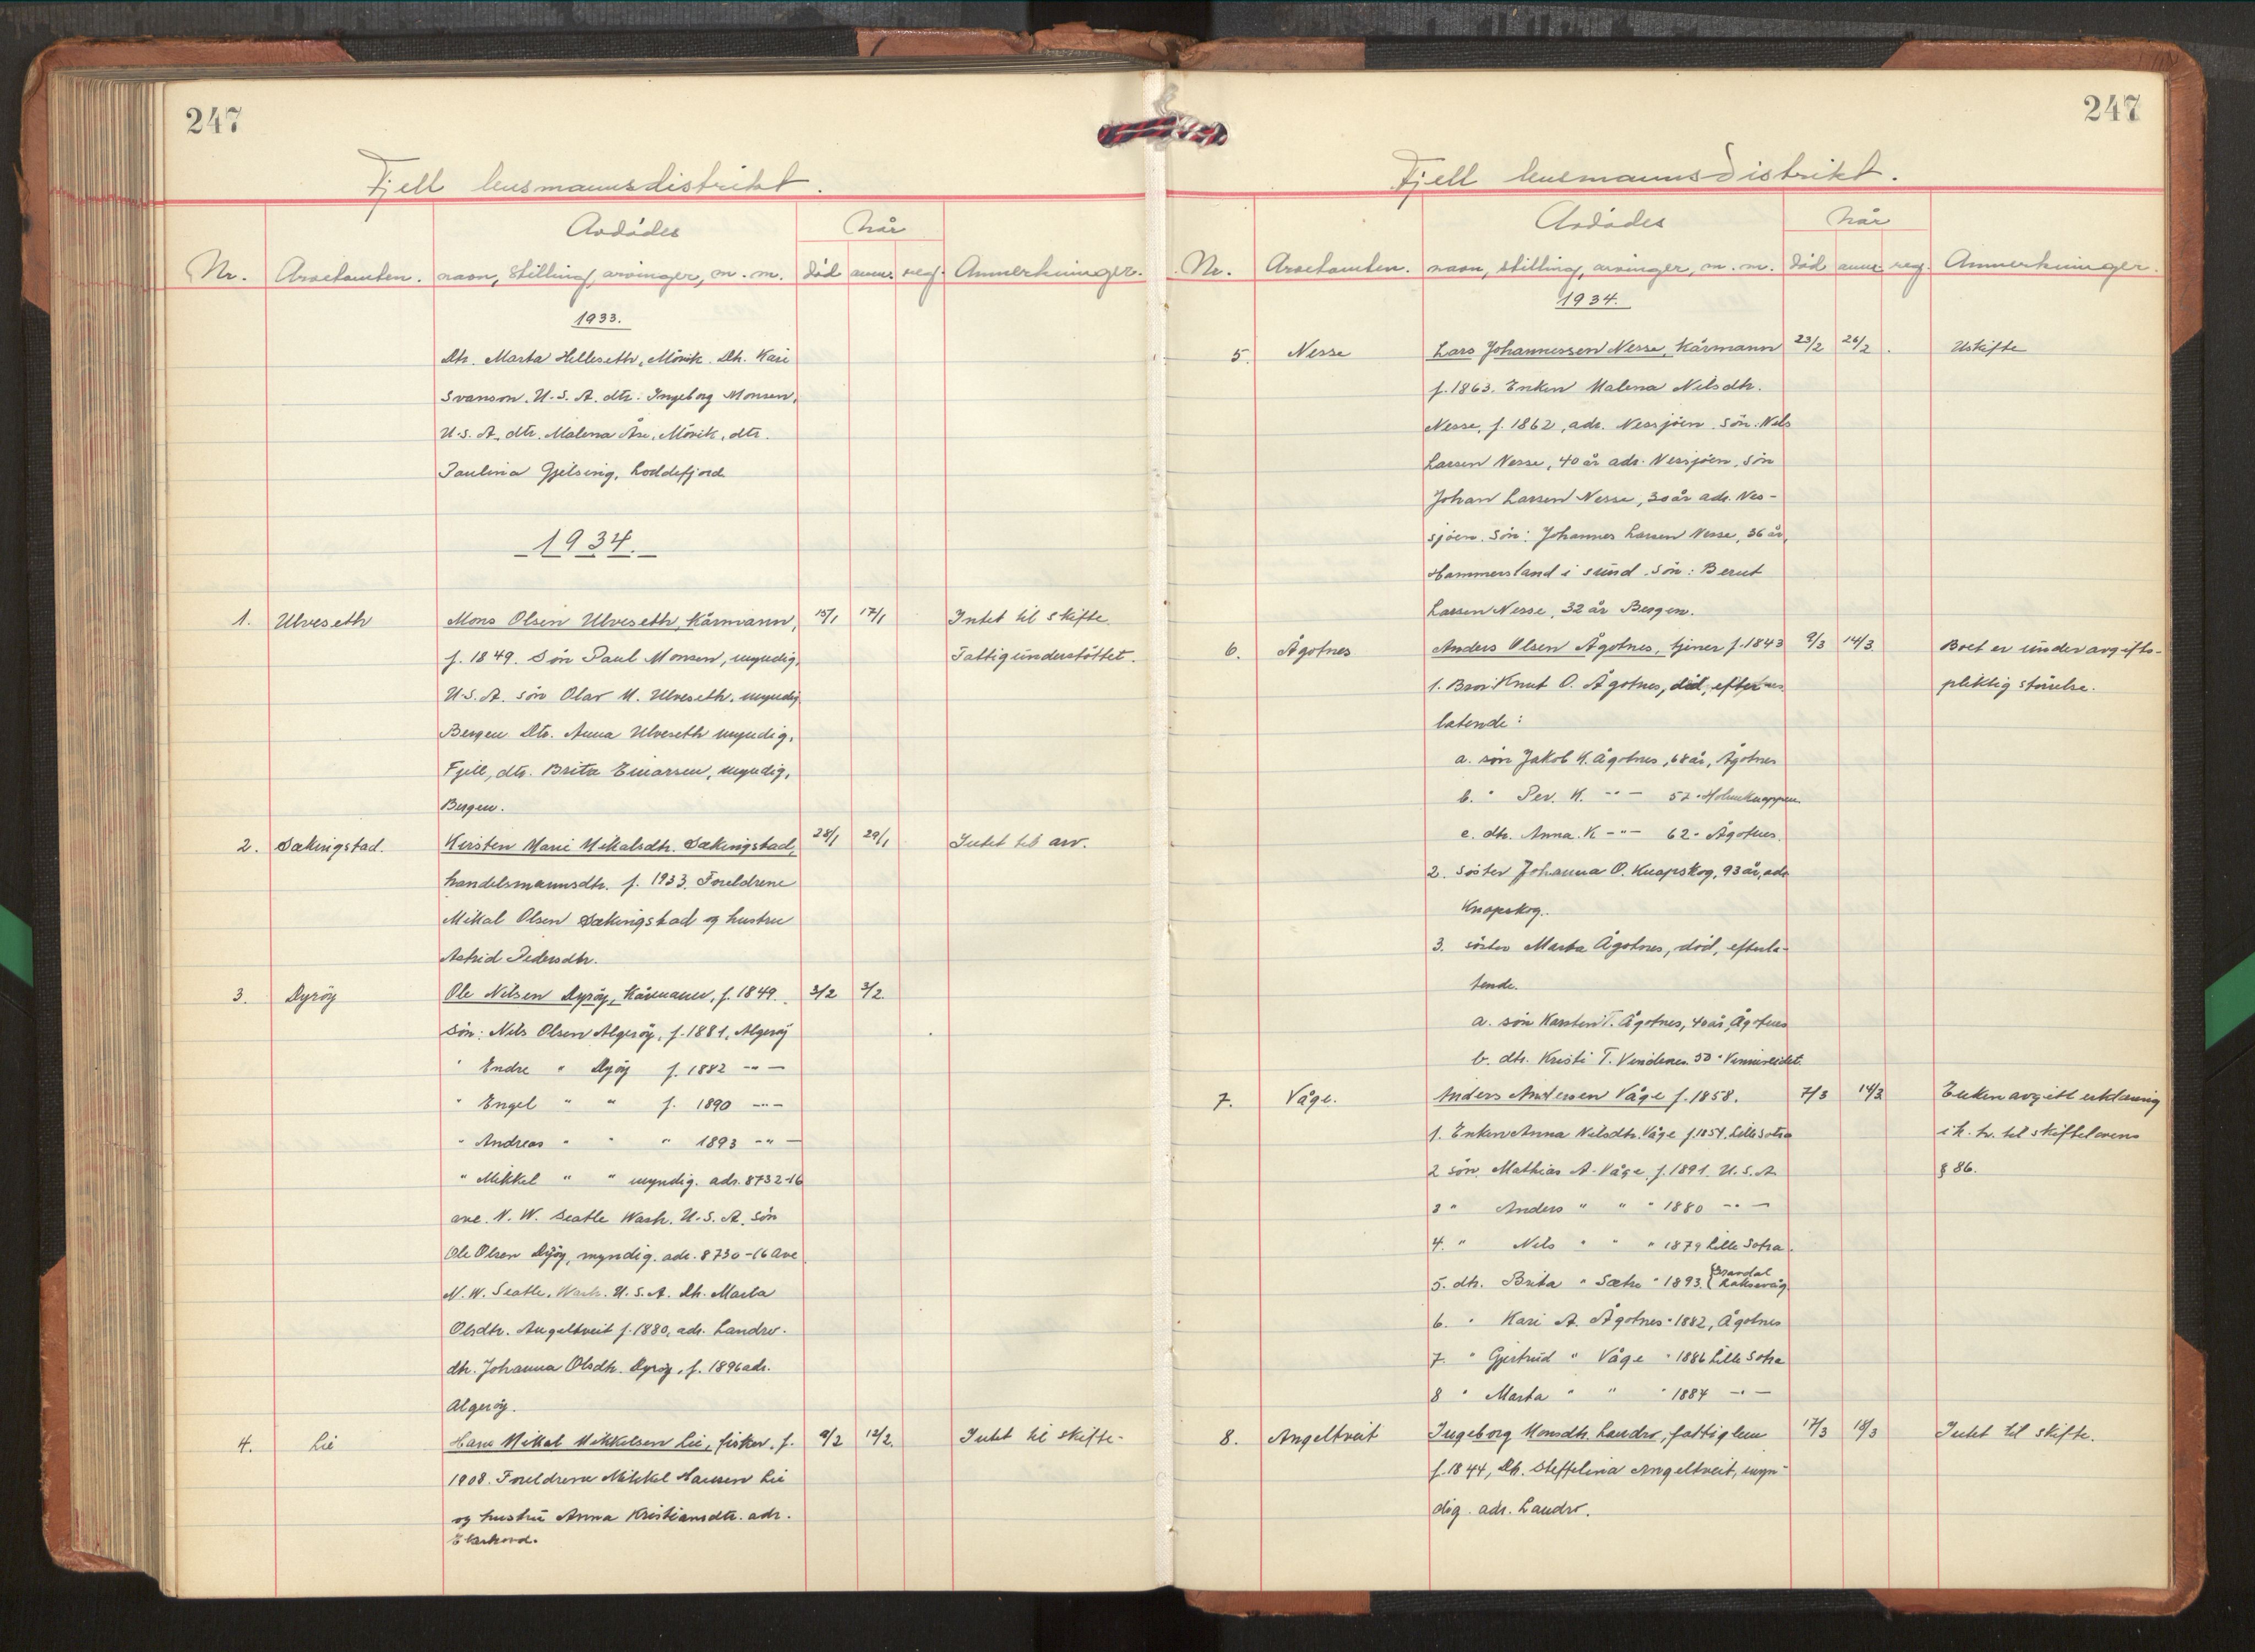 247
Fjell lensmannsdistrikt.
Avdødes
Når
Nr. Arvetomten. navn, stilling, arvinger, m. m. död anm. reg. Anmerkninger.
1933.
Dtr. Marta Helleseth, Mövik. Dtr. Kari
Svanson. U.S.A. dtr. Ingeborg Monsen,
U.S.A. dtr. Malena Åse, Mövik, dtr.
Paulina Gjelsvig, Loddefjord
1934.
1. Ulveseth Mons Olsen Ulveseth, Kårmann, 15/1 17/1 Intet til skifte.
f. 1849. Sön Paul Monsen, myndig, Fattigunderstöttet.
U.S.A. sön Olav M. Ulveseth, myndig
Bergen. Dtr. Anna Ulveseth myndig,
Fjell, dtr. Brita Einarsen, myndig,
Bergen.
2. Sekingstad. Kirsten Marie Mikalsdtr. Sekingstad, 28/1 29/1 Intet til arv.
handelsmannsdtr. f. 1933. Foreldrene
Mikal Olsen Sekingstad og hustru
Astrid Pedersdtr.
3. Dyröy Ole Nilsen Dyröy, Kårmann, f. 1849. 3/2 3/2.
Sön: Nils Olsen Algeröy, f. 1881, Algeröy
" Endre " Dyröy f. 1882 -"-
" Engel " " f. 1890 -"-
" Andreas " " " 1893 -"-
" Mikkel " " myndig. adr. 8732-16
ave. N. W. Seatle Wash. U.S.A. Sön
Ole Olsen Dyröy, myndig. adr. 8730-16 Ave
N. W. Seatle. Wash. U.S.A. Dtr. Marta
Olsdtr. Angeltveit f. 1880, adr. Landro.
dtr. Johanna Olsdtr. Dyröy, f. 1896 adr.
Algeröy.
4. Lie Hans Mikal Mikkelsen Lie, fisker, f. 9/2 12/2. Intet til skifte.
1908. Foreldrene Mikkel Hansen Lie
og hustru Anna Kristiansdtr. adr.
247
Fjell lensmannsdistrikt.
Avdødes
Når
Nr. Arvetomten. navn, stilling, arvinger, m. m. död anm. reg. Anmerkninger.
1934.
5. Nesse Lars Johannessen Nesse, Kårmann 23/2 26/2 Uskifte
f. 1863. Enken Malena Nilsdtr.
Nesse, f. 1862, adr. Nessjöen. Sön. Nils
Larsen Nesse, 40 år adr. Nessjöen, Sön
Johan Larsen Nesse, 30 år adr. Nes-
sjöen. Sön: Johannes Larsen Nesse, 36 år,
Hammersland i Sund. Sön: Bernt
Larsen Nesse, 32 år Bergen.
6. Ågotnes Anders Olsen Ågotnes, tjener f. 1843 9/3 14/3 Boet er under avgifts-
1. Bror Knut O. Ågotnes, död, efter pliktig störelse.
latende:
a. sön Jakob K. Ågotnes, 68 år, Ågotnes
b. " Per. K. -"- 52 " Holmeknappen.
c. dtr. Anna. K -"- 62 " Ågotnes.
2. Söster Johanna O. Knapskog, 93 år, adr
Knapskog.
3. söster Marta Ågotnes, död, efterla-
tende.
a. sön Karsten T. Ågotnes, 40 år Ågotnes
b. dtr. Kristi T. Vindenes. 50 "
7. Våge. Anders Andersen Våge f. 1858. 7/3 14/3 Enken avgitt erklæring
1. Enken Anna Nilsdtr. Våge f. 1854. Lille Sotra i h. t. til skiftelovens
2 sön. Mathias A. Våge, f. 1891. U.S.A. § 86.
3 " Anders " " " 1880 -"-
4. " Nils " " " 1879 Lille Sotra.
5. dtr. Brita " Sætre " 1893. (Laksevåg
6. " Kari A. Ågotnes " 1882, Ågotnes
7. " Gjertrud " Våge " 1886 Lille Sotra
8 " Marta " " " 1884 -"-
8. Angeltveit Ingeborg Monsdtr. Landro, fattiglem 17/3 18/3 Intet til skifte.
f. 1844, Dtr. Steffelina Angeltveit, myn-
dig. adr. Landro.